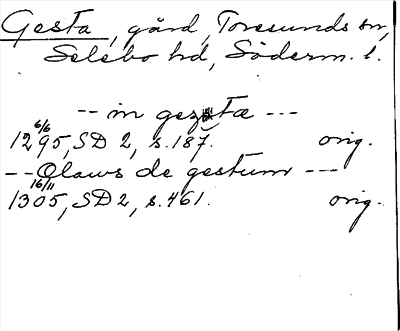 Gesta, gård, Toresunds sn,
Selebo hd, Söderm. l.
-- in gezstæ ---
6/6
1295, SD 2, s. 187. orig.
-- Olaws de gestum ---
16/11
1305, SD 2, s. 461. orig.